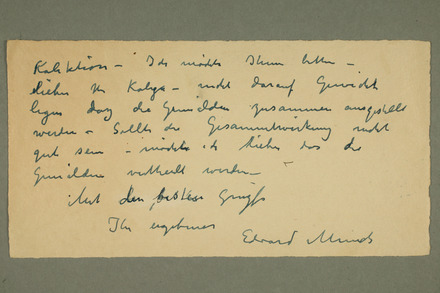 Kollektion – Ich möchte Ihnen bitten –
lieber Hr Kolge – nicht darauf Gewicht
legen daz die Gemelden zusammen ausgestellt
werden – Sollte die Gesammtwirkung nicht
gut sein – möchte ich lieber das die
Gemelden vertheilt werden –
Mit den besten Grüsse
Ihr ergebener
Edvard Munch